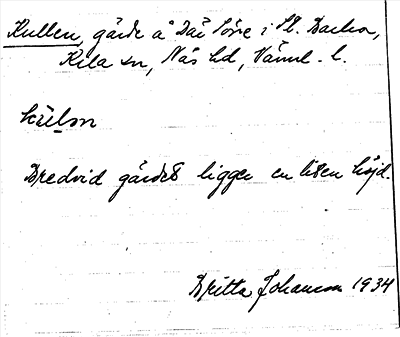 Kullen, gärde å Där Sörve i St. Backa,
Kila sn, Näs hd, Värml. l.
kül̥ən
Bredvid gärdet ligger en liten höjd.
Britta Johanson 1934